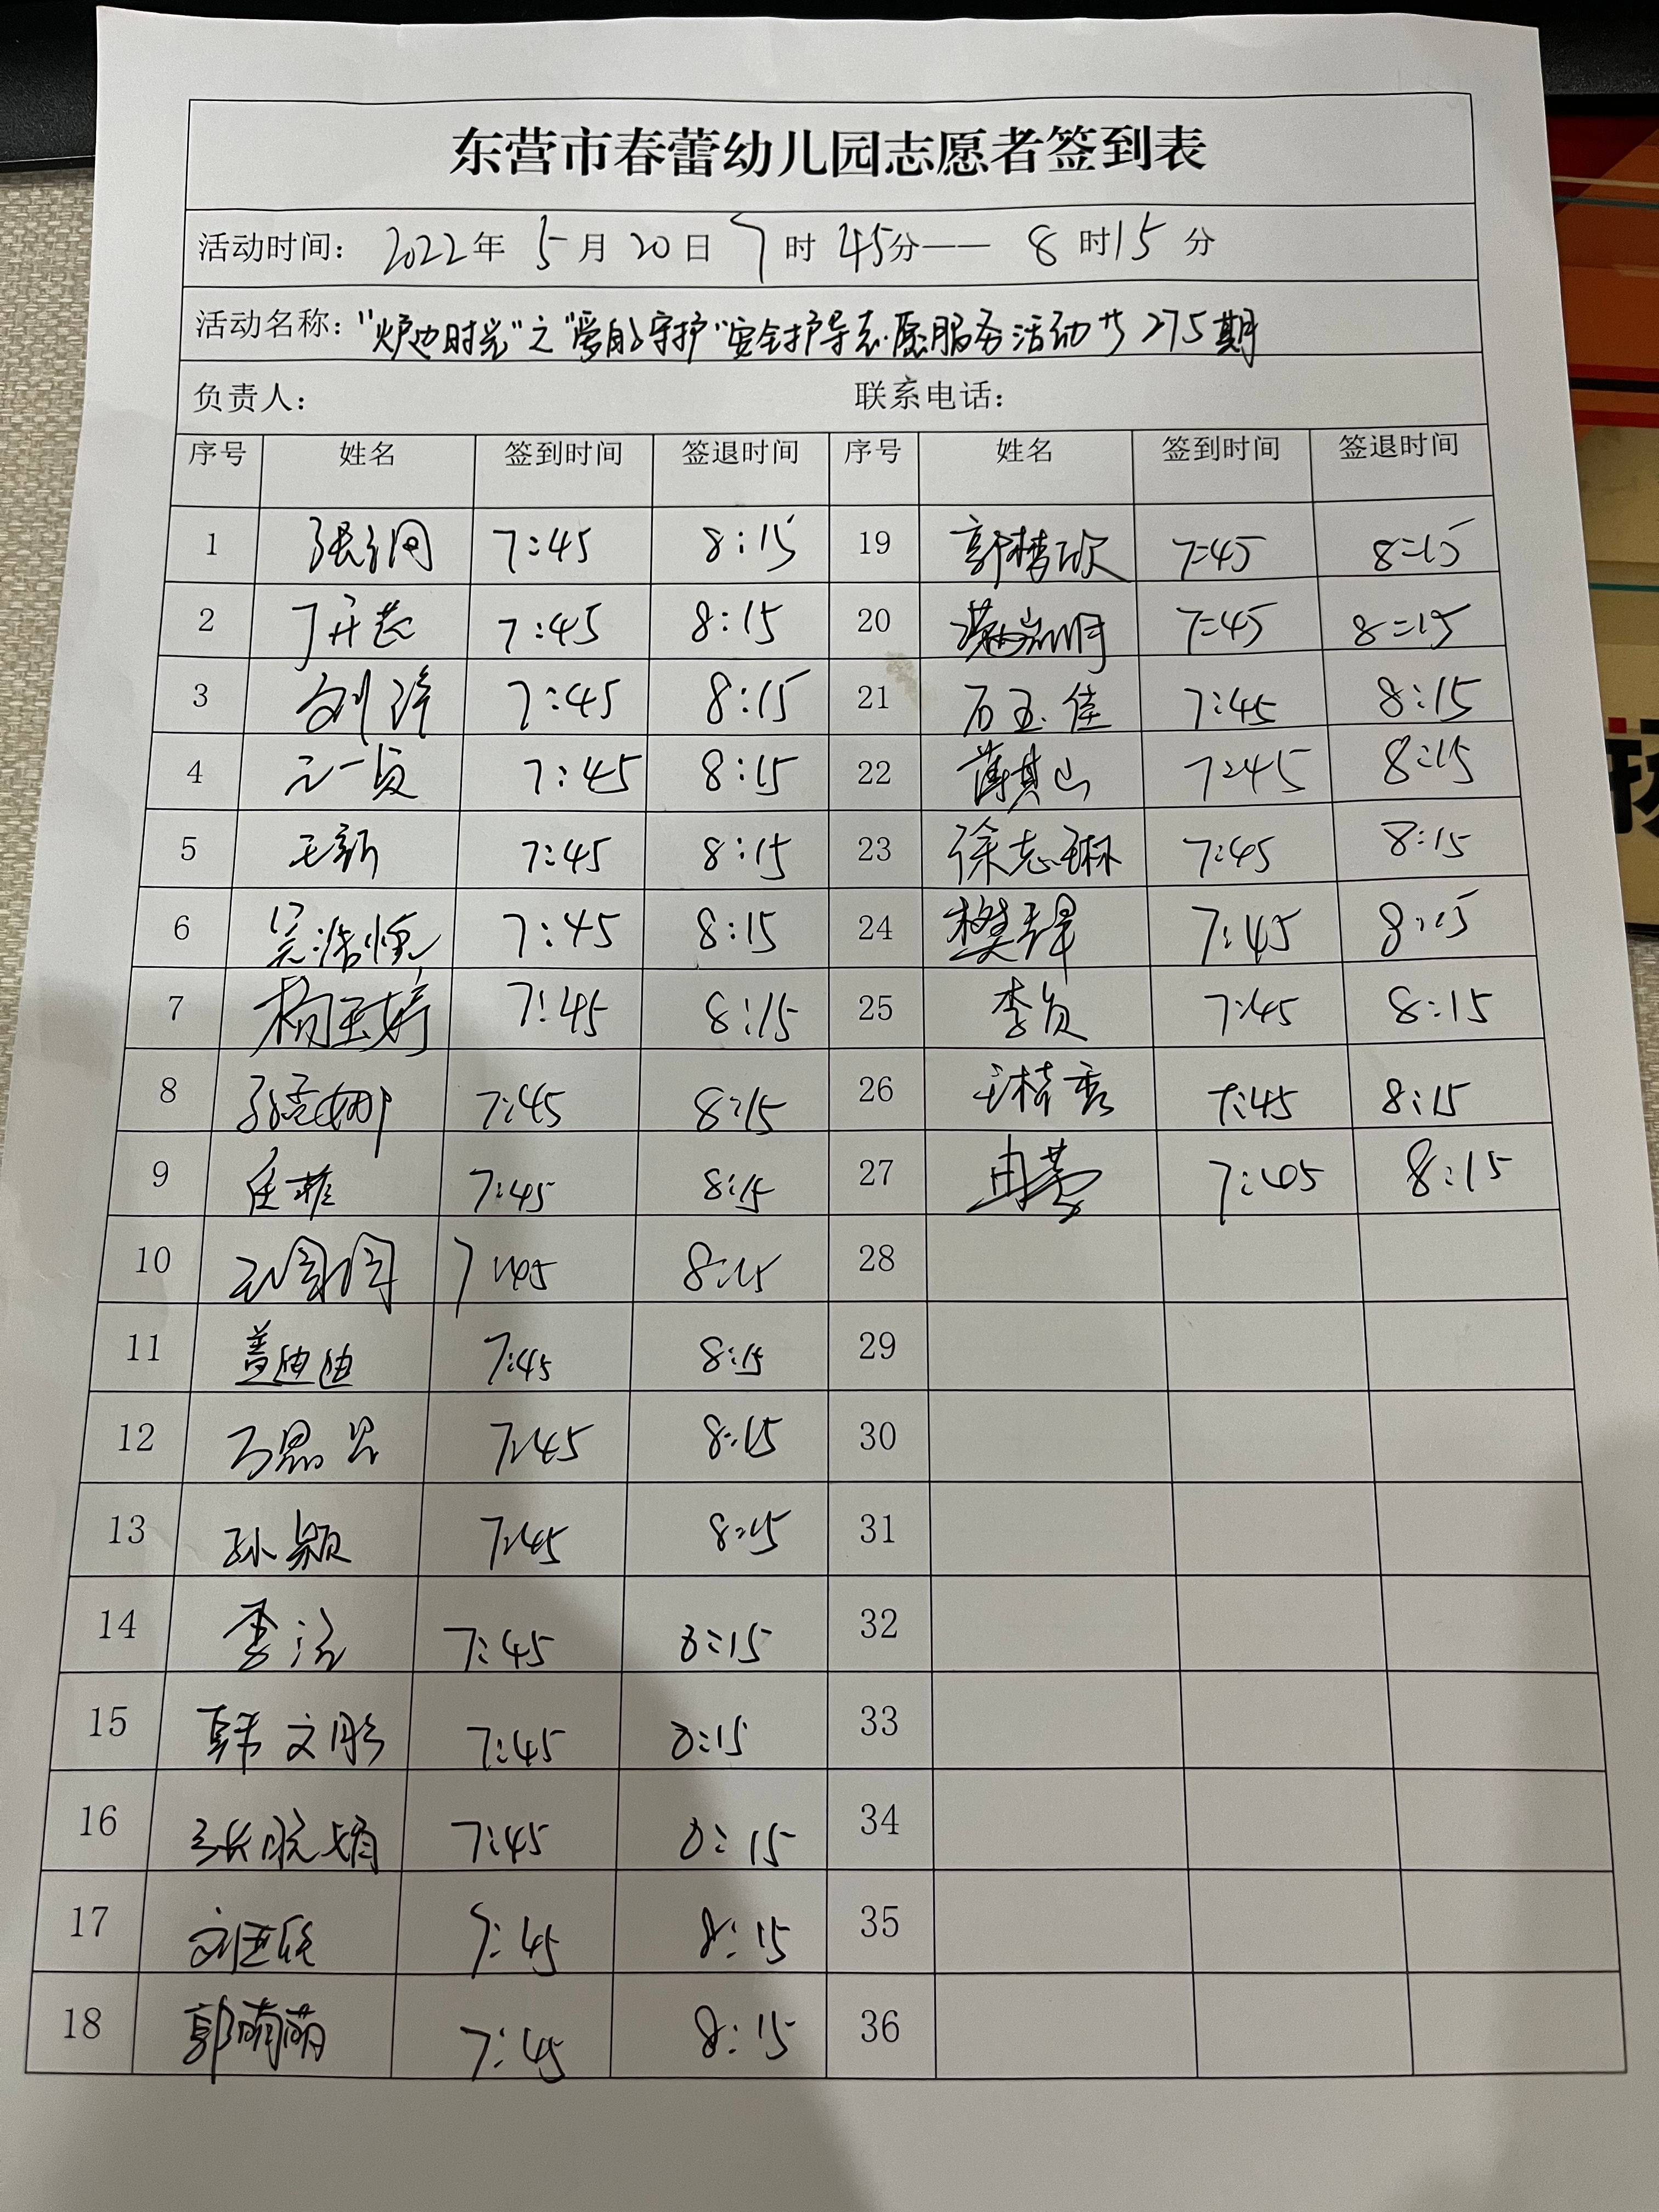 东营市春蕾幼儿园志愿者签到表
活动时间: 2022年 5月 20日 7时 45分—— 8时15分
活动名称:"炉边时光"之"爱的守护"安全护导志愿服务活动 275期
负责人: 联系电话:
序号 姓名 签到时间 签退时间 序号 姓名 签到时间 签退时间
1 7:45 8:15 19 郭梦欣 7:45 8:15
2 7:45 8:15 20 7:45 8:15
3 7:45 8:15 21 石玉佳 7:45 8:15
4 7:45 8:15 22 薄其山 7:45 8:15
5 王新 7:45 8:15 23 徐志琳 7:45 8:15
6 7:45 8:15 24 7:45 8:15
7 杨玉婷 7:45 8:15 25 7:45 8:15
8 7:45 8:15 26 王桂秀 7:45 8:15
9 7:45 8:15 27 7:45 8:15
10 7:45 8:15 28
11 盖迪迪 7:45 8:15 29
12 7:45 8:15 30
13 孙颖 7:45 8:15 31
14 7:45 8:15 32
15 韩文彤 7:45 8:15 33
16 张晓娟 7:45 8:15 34
17 7:45 8:15 35
18 郭萌萌 7:45 8:15 36